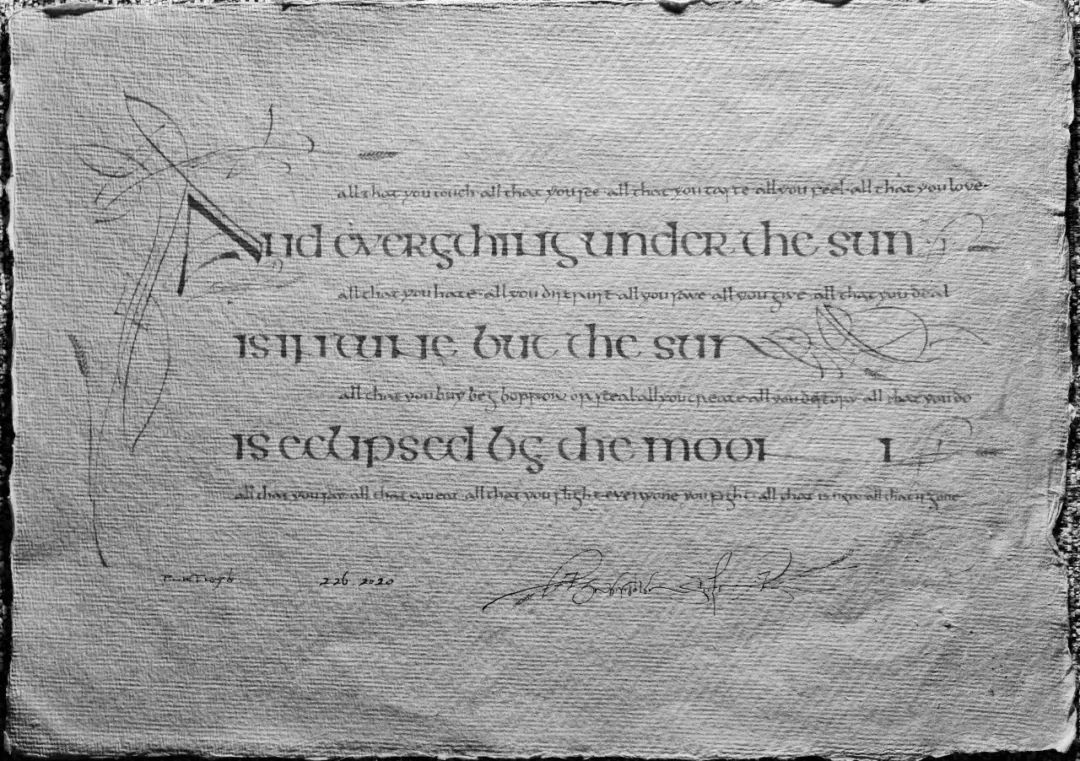 all that you touch · all that you see · all that you taste · all you feel · all that you love ·
And everything under the sun
all that you hate · all you distrust · all you save · all you give · all that you deal
is in tune but the sun
all that you buy beg borrow or steal · all you create · all you destroy · all that you do
is eclipsed by the moon
all that you say · all that you eat · all that you slight · everyone you fight · all that is now · all that is gone
226 2020